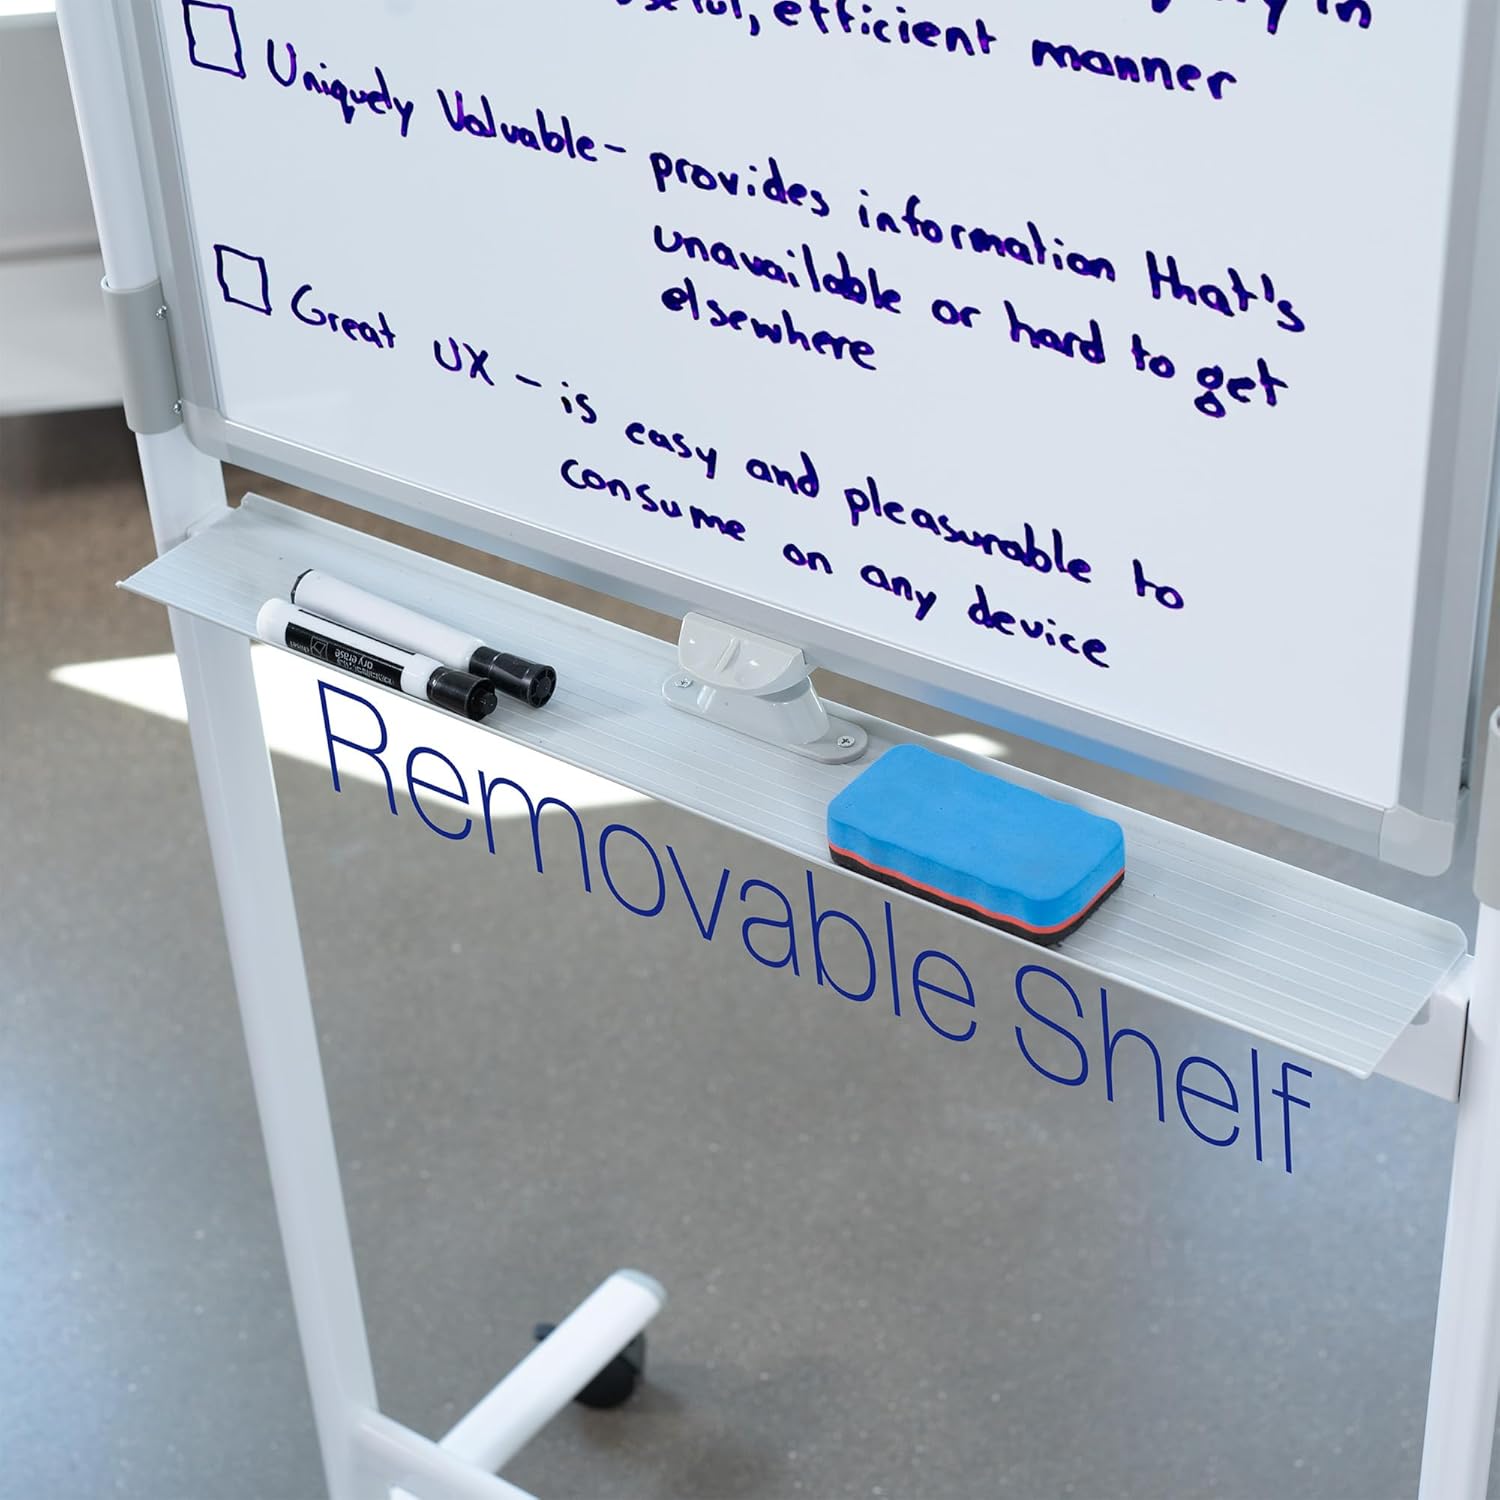 in
useful, efficient manner
Uniquely Valuable - provides information that's
unavailable or hard to get
elsewhere
Great UX - is easy and pleasurable to
consume on any device
dry erase
Removable Shelf